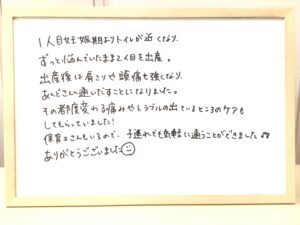 1人目妊娠期よりトイレが近くなり、
ずっと悩んでいたままで2人目を出産。
出産後は肩こりや頭痛も強くなり、
あんどさんへ通いだすことになりました。
その都度変わる痛みやトラブルの出ているところのケアも
してもらっていました!
保育士さんもいるので、子連れでも気軽に通うことができました
ありがとうございました